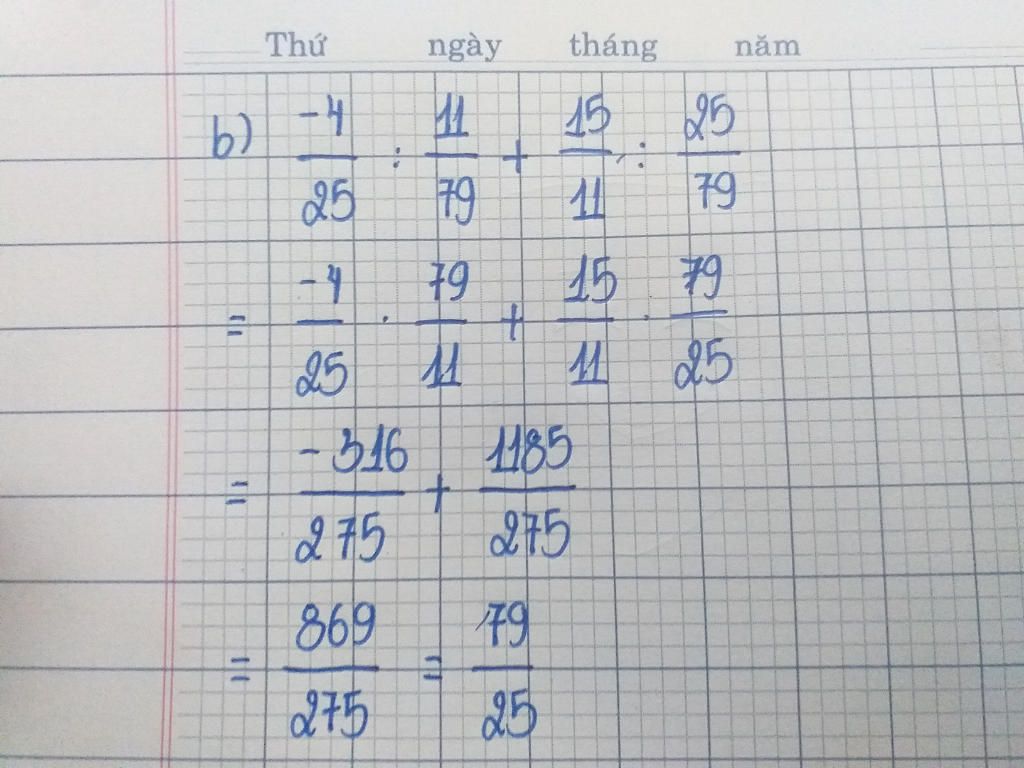 Thứ ngày tháng năm
b) -4/25 : 11/79 + 15/11 : 25/79
= -4/25 . 79/11 + 15/11 . 79/25
= -316/275 + 1185/275
= 869/275 = 79/25